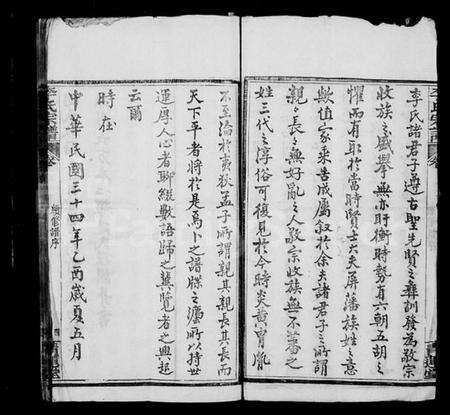 李氏諸君子遵古聖先賢之彝訓發為敬宗
收族之盛舉無亦盱衡時勢有六朝五胡之
懼而有取於當時賢士大夫屏藩族姓之意
歟值家乘告成屬叙於余夫諸君子之所謂
親親長長無好亂之人敬宗收族無不
姓三代之淳俗可復見於今時炎黃胄胤
不至淪於夷狄孟子所謂親其親長其長而
天下平者將於是焉卜之譜牒之所以持世
運厚人心者聊綴數語歸之冀覽者之興起
云爾
時在
中華民國三十四年乙酉歲夏五月
李氏宗譜
卷
續修譜序
四